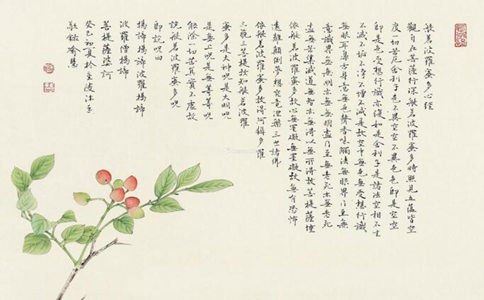 般若波羅蜜多心經
觀自在菩薩行深般若波羅蜜多時照見五蘊皆空
度一切苦厄舍利子色不異空空不異色色即是空空
即是色受想行識亦復如是舍利子是諸法空相不生
不滅不垢不淨不增不減是故空中無色無受想行識
無眼耳鼻舌身意無色聲香味觸法無眼界乃至無
意識界無無明亦無無明盡乃至無老死亦無老死
盡無苦集滅道無智亦無得以無所得故菩提薩埵
依般若波羅蜜多故心無罣礙無罣礙故無有恐怖
遠離顛倒夢想究竟涅槃三世諸佛
依般若波羅蜜多故得阿耨多羅
三藐三菩提故知般若波羅
蜜多是大神呪是大明呪
是無上呪是無等等呪
能除一切苦真實不虛故
說般若波羅蜜多呪
即說呪曰
揭諦揭諦波羅揭諦
波羅僧揭諦
菩提薩婆訶
癸巳初夏於金陵沐手
敬録喻慧